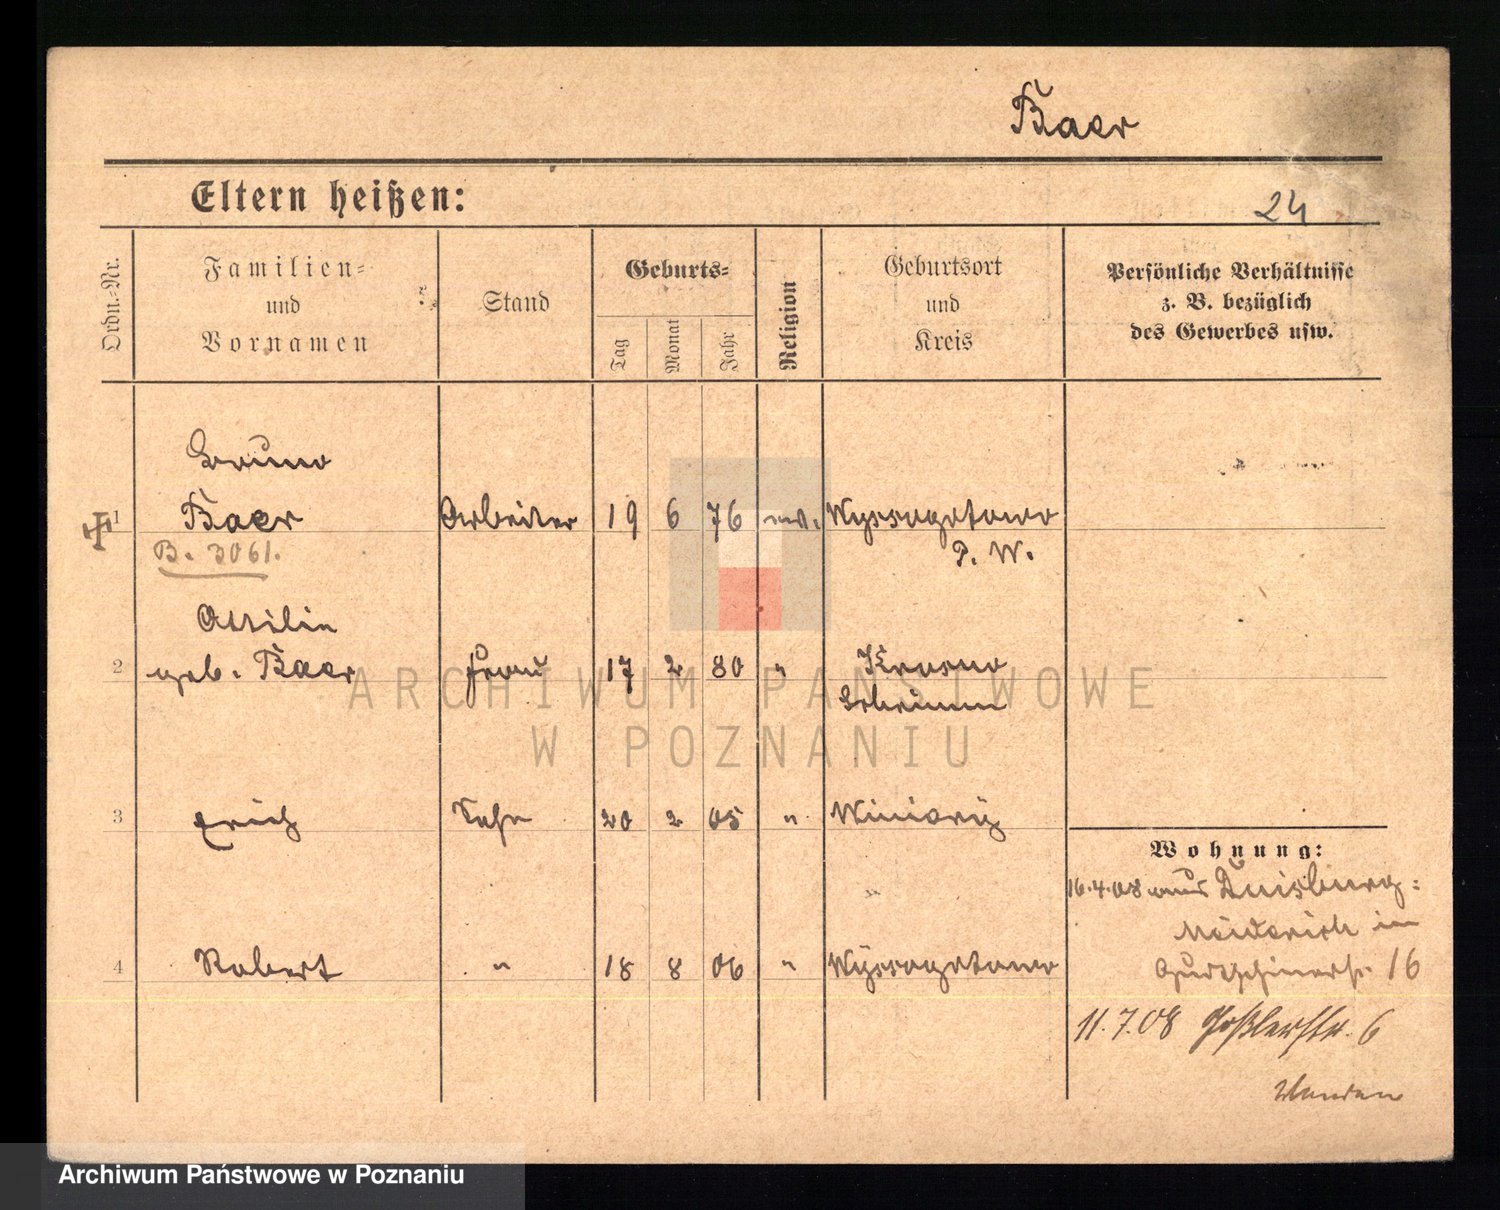 Baer
Eltern heißen:
24
Ordn.-Nr.
Familien-
und
Vornamen
Stand
Geburts-
Tag
Monat
Jahr
Religion
Geburtsort
und
Kreis
Persönliche Verhältnisse
z. B. bezüglich
des Gewerbes usw.
Bruno
1 Baer Arbeiter 19 6 76 Wyssogotowo
B. 3061. P. W.
Ottilie
2 geb. Baer Frau 17 2 80 " Krosno
Schrimm
3 Erich Sohn 20 2 05 " Winiary
Wohnung:
16.4.08 aus Duisburg-
Meiderich in
4 Robert " 18 8 06 " Wyssogotowo
16
11.7.08 Goßlerstr. 6
ARCHIWUM PAŃSTWOWE
W POZNANIU
Archiwum Państwowe w Poznaniu